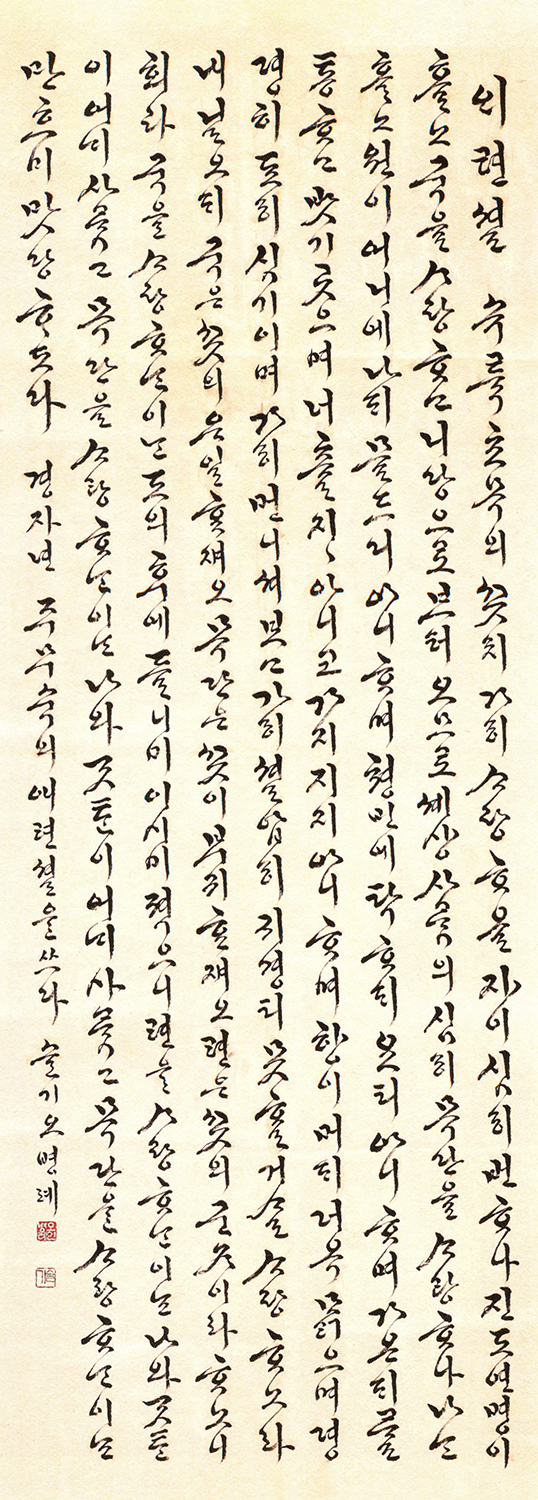 ᄋᆡ련셜 슈륙 초목의 ᄭᅩᆺ치 가히 ᄉᆞ랑ᄒᆞ올 자이 심히 번ᄒᆞ나 진 도연명이
홀노 국을 ᄉᆞ랑ᄒᆞ고 니당으로브터 오ᄆᆞ로 셰상 사ᄅᆞᆷ의 심히 목단을 ᄉᆞ랑ᄒᆞ나 나ᄂᆞᆫ
홀노 련이 어니에 나되 믈드디 아니ᄒᆞ며 쳥년에 탁ᄒᆞ되 요티 아니ᄒᆞ며 가온ᄃᆡ
통ᄒᆞ고 밧기 곳으며 너출지지 아니코 가지지지 아니ᄒᆞ며 향이 머되 더욱 ᄆᆞᆰ으며 졍
졍히 도히 심기이며 가히 먼니셔 보고 가히 셜압히 지졍티 못ᄒᆞᆯ 거ᄉᆞᆯ ᄉᆞ랑ᄒᆞ노라
내 닐오ᄃᆡ 국은 ᄭᅩᆺ의 은일ᄒᆞᆫ쟤오 목단은 ᄭᅩᆺ이 부귀ᄒᆞᆫ쟤오 련은 ᄭᅩᆺ의 군ᄌᆞ이라 ᄒᆞ노니
희라 국을 ᄉᆞ랑ᄒᆞᄂᆞ이ᄂᆞᆫ 도의 후에 들니미 이시미 젹으니 련을 ᄉᆞ랑ᄒᆞᄂᆞ이ᄂᆞᆫ 나와 ᄀᆞᆺᄐᆞᆫ
이 어ᄂᆡ 사ᄅᆞᆷ고 목단을 ᄉᆞ랑ᄒᆞᄂᆞ이ᄂᆞᆫ 나와 ᄀᆞᆺᄐᆞᆫ이 어ᄂᆡ 사ᄅᆞᆷ고 목단을 ᄉᆞ랑ᄒᆞᄂᆞ이ᄂᆞᆫ
만ᄒᆞ미 맛당ᄒᆞ도다 경자년 주무숙의 애련셜을 쓰다 슬기 오명례